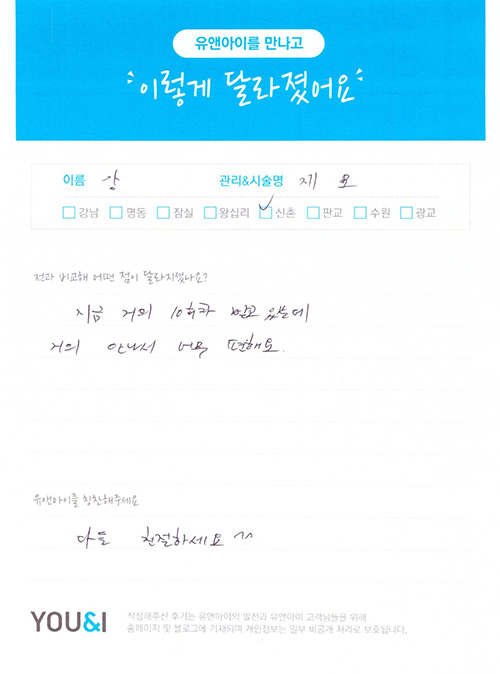 유앤아이를 만나고
이렇게 달라졌어요
이름 강 관리&시술명 제 모
강남 명동 잠실 왕십리 신촌 판교 수원 광교
전과 비교해 어떤 점이 달라지셨나요?
지금 거의 10회차 받고 있는데
거의 안나서 너무 편해요.
유앤아이를 칭찬해주세요
다들 친절하세요 ^^
YOU&I
작성해주신 후기는 유앤아이의 발전과 유앤아이 고객님들을 위해
홈페이지 및 블로그에 기재되며 개인정보는 일부 비공개 처리로 보호됩니다.